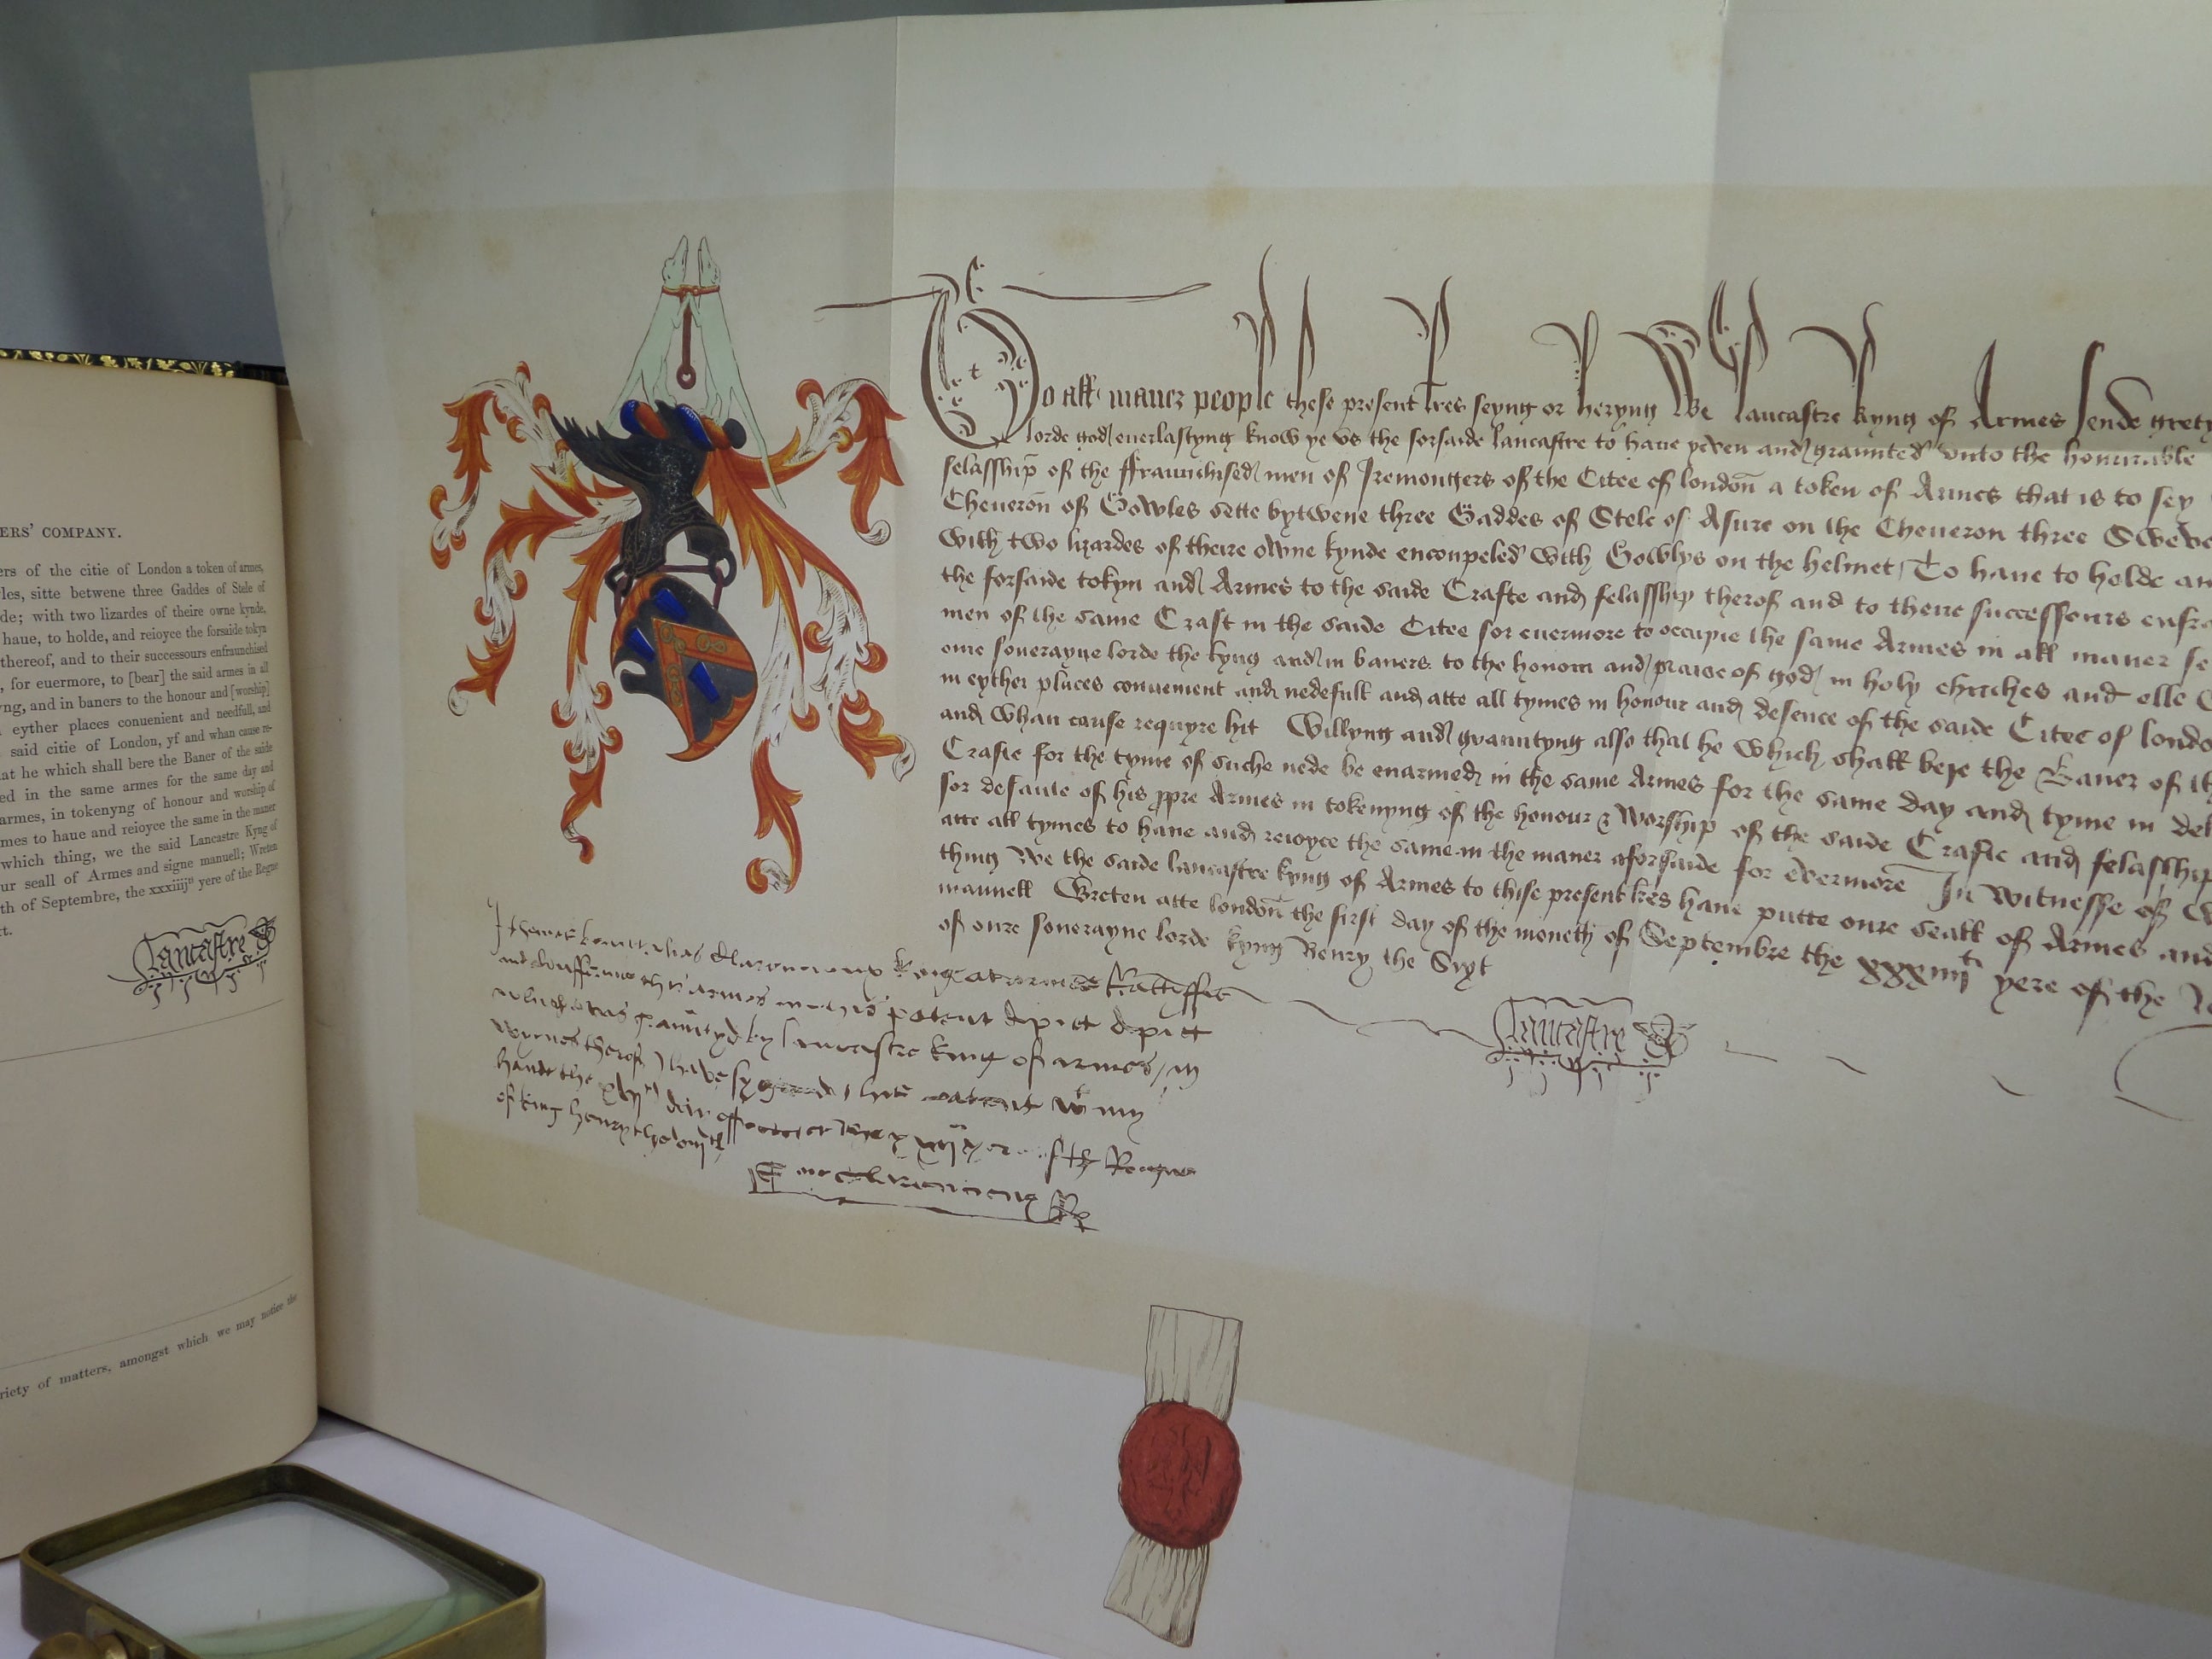 ERS' COMPANY.
ers of the citie of London a token of armes,
les, sitte betwene three Gaddes of Stele of
de; with two lizardes of theire owne kynde,
haue, to holde, and reioyce the forsaide tokyn
thereof, and to their successours enfraunchised
, for euermore, to [bear] the said armes in all
yng, and in baners to the honour and [worship]
eyther places conuenient and needfull, and
said citie of London, yf and whan cause re-
at he which shall bere the Baner of the saide
ed in the same armes for the same day and
armes, in tokenyng of honour and worship of
mes to haue and reioyce the same in the maner
which thing, we the said Lancastre Kyng of
ur seall of Armes and signe manuell; Wreten
th of Septembre, the xxxiiij yere of the Regne
t.
Lancastre
riety of matters, amongst which we may notice the
To all maner people these present lres seyng or heryng We lancastre kyng of Armes sende grety
lorde god euerlastyng know ye vs the forsaide lancastre to haue yeven and graunted vnto the honurable
felasship of the ffraunchised men of Iremongers of the Citee of london a token of Armes that is to sey
Cheueron of Gowles sette bytwene three Gaddes of Stele of Asure on the Cheueron three Sweve
with two lizardes of theire owne kynde encoupeled with Gowlys on the helmet To haue to holde an
the forsaide tokyn and Armes to the saide Crafte and felasship therof and to theire successours enfra
men of the same Craft in the saide Citee for euermore to occupie the same Armes in all maner se
oure souerayne lorde the kyng and in baners to the honour and praise of god in holy chirches and elle
in eyther places conuenient and nedefull and atte all tymes in honour and defence of the saide Citee of londo
and whan cause requyre hit Willyng and grauntyng also that he which shall bere the Baner of th
Crafte for the tyme of suche nede be enarmed in the same Armes for the same day and tyme in de
for defaute of his ppre Armes in tokenyng of the honour & worship of the saide Crafte and felasship
atte all tymes to haue and reioyce the same in the maner aforsaide for evermore In witnesse of w
thing We the saide lancastre kyng of Armes to thise present lres haue putte oure seall of Armes and
manuell Wreten atte london the first day of the moneth of Septembre the xxxiiijt yere of the R
of oure souerayne lorde kyng Henry the Sixt
Lancastre
alias Clarencieux king at armes
armes in this patent
which was by lancastre king of armes, in
wytnes therof I have this patent wt my
hande the day of the of the Reigne
of king henry the
Clarencieux